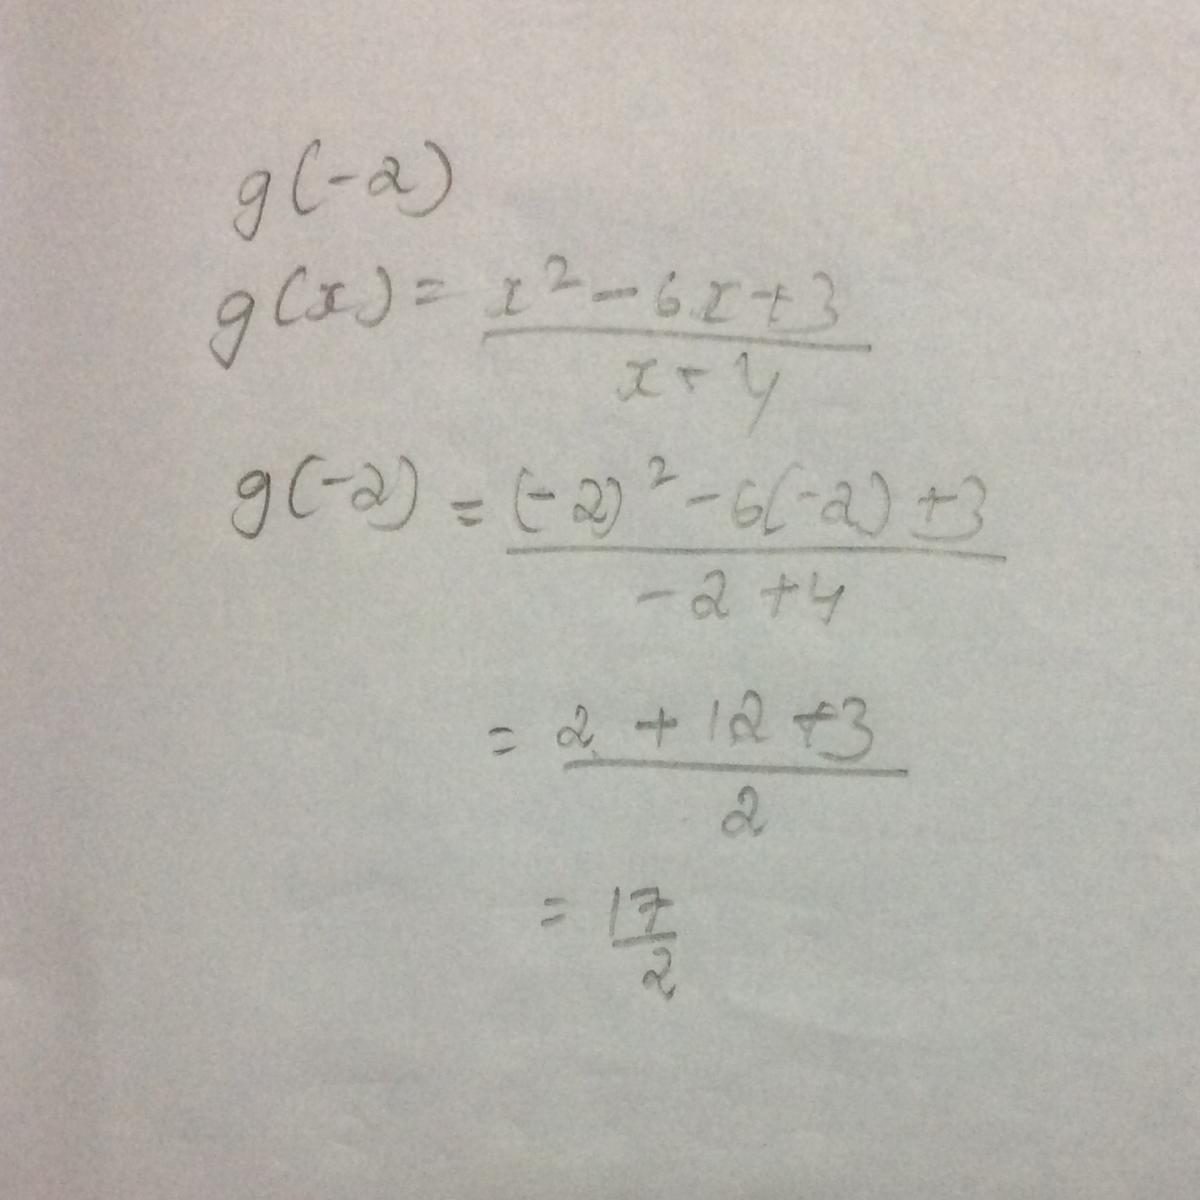 g(-2)
g(x) = x² - 6x + 3 / x + 4
g(-2) = (-2)² - 6(-2) + 3 / -2 + 4
= 2 + 12 + 3 / 2
= 17 / 2